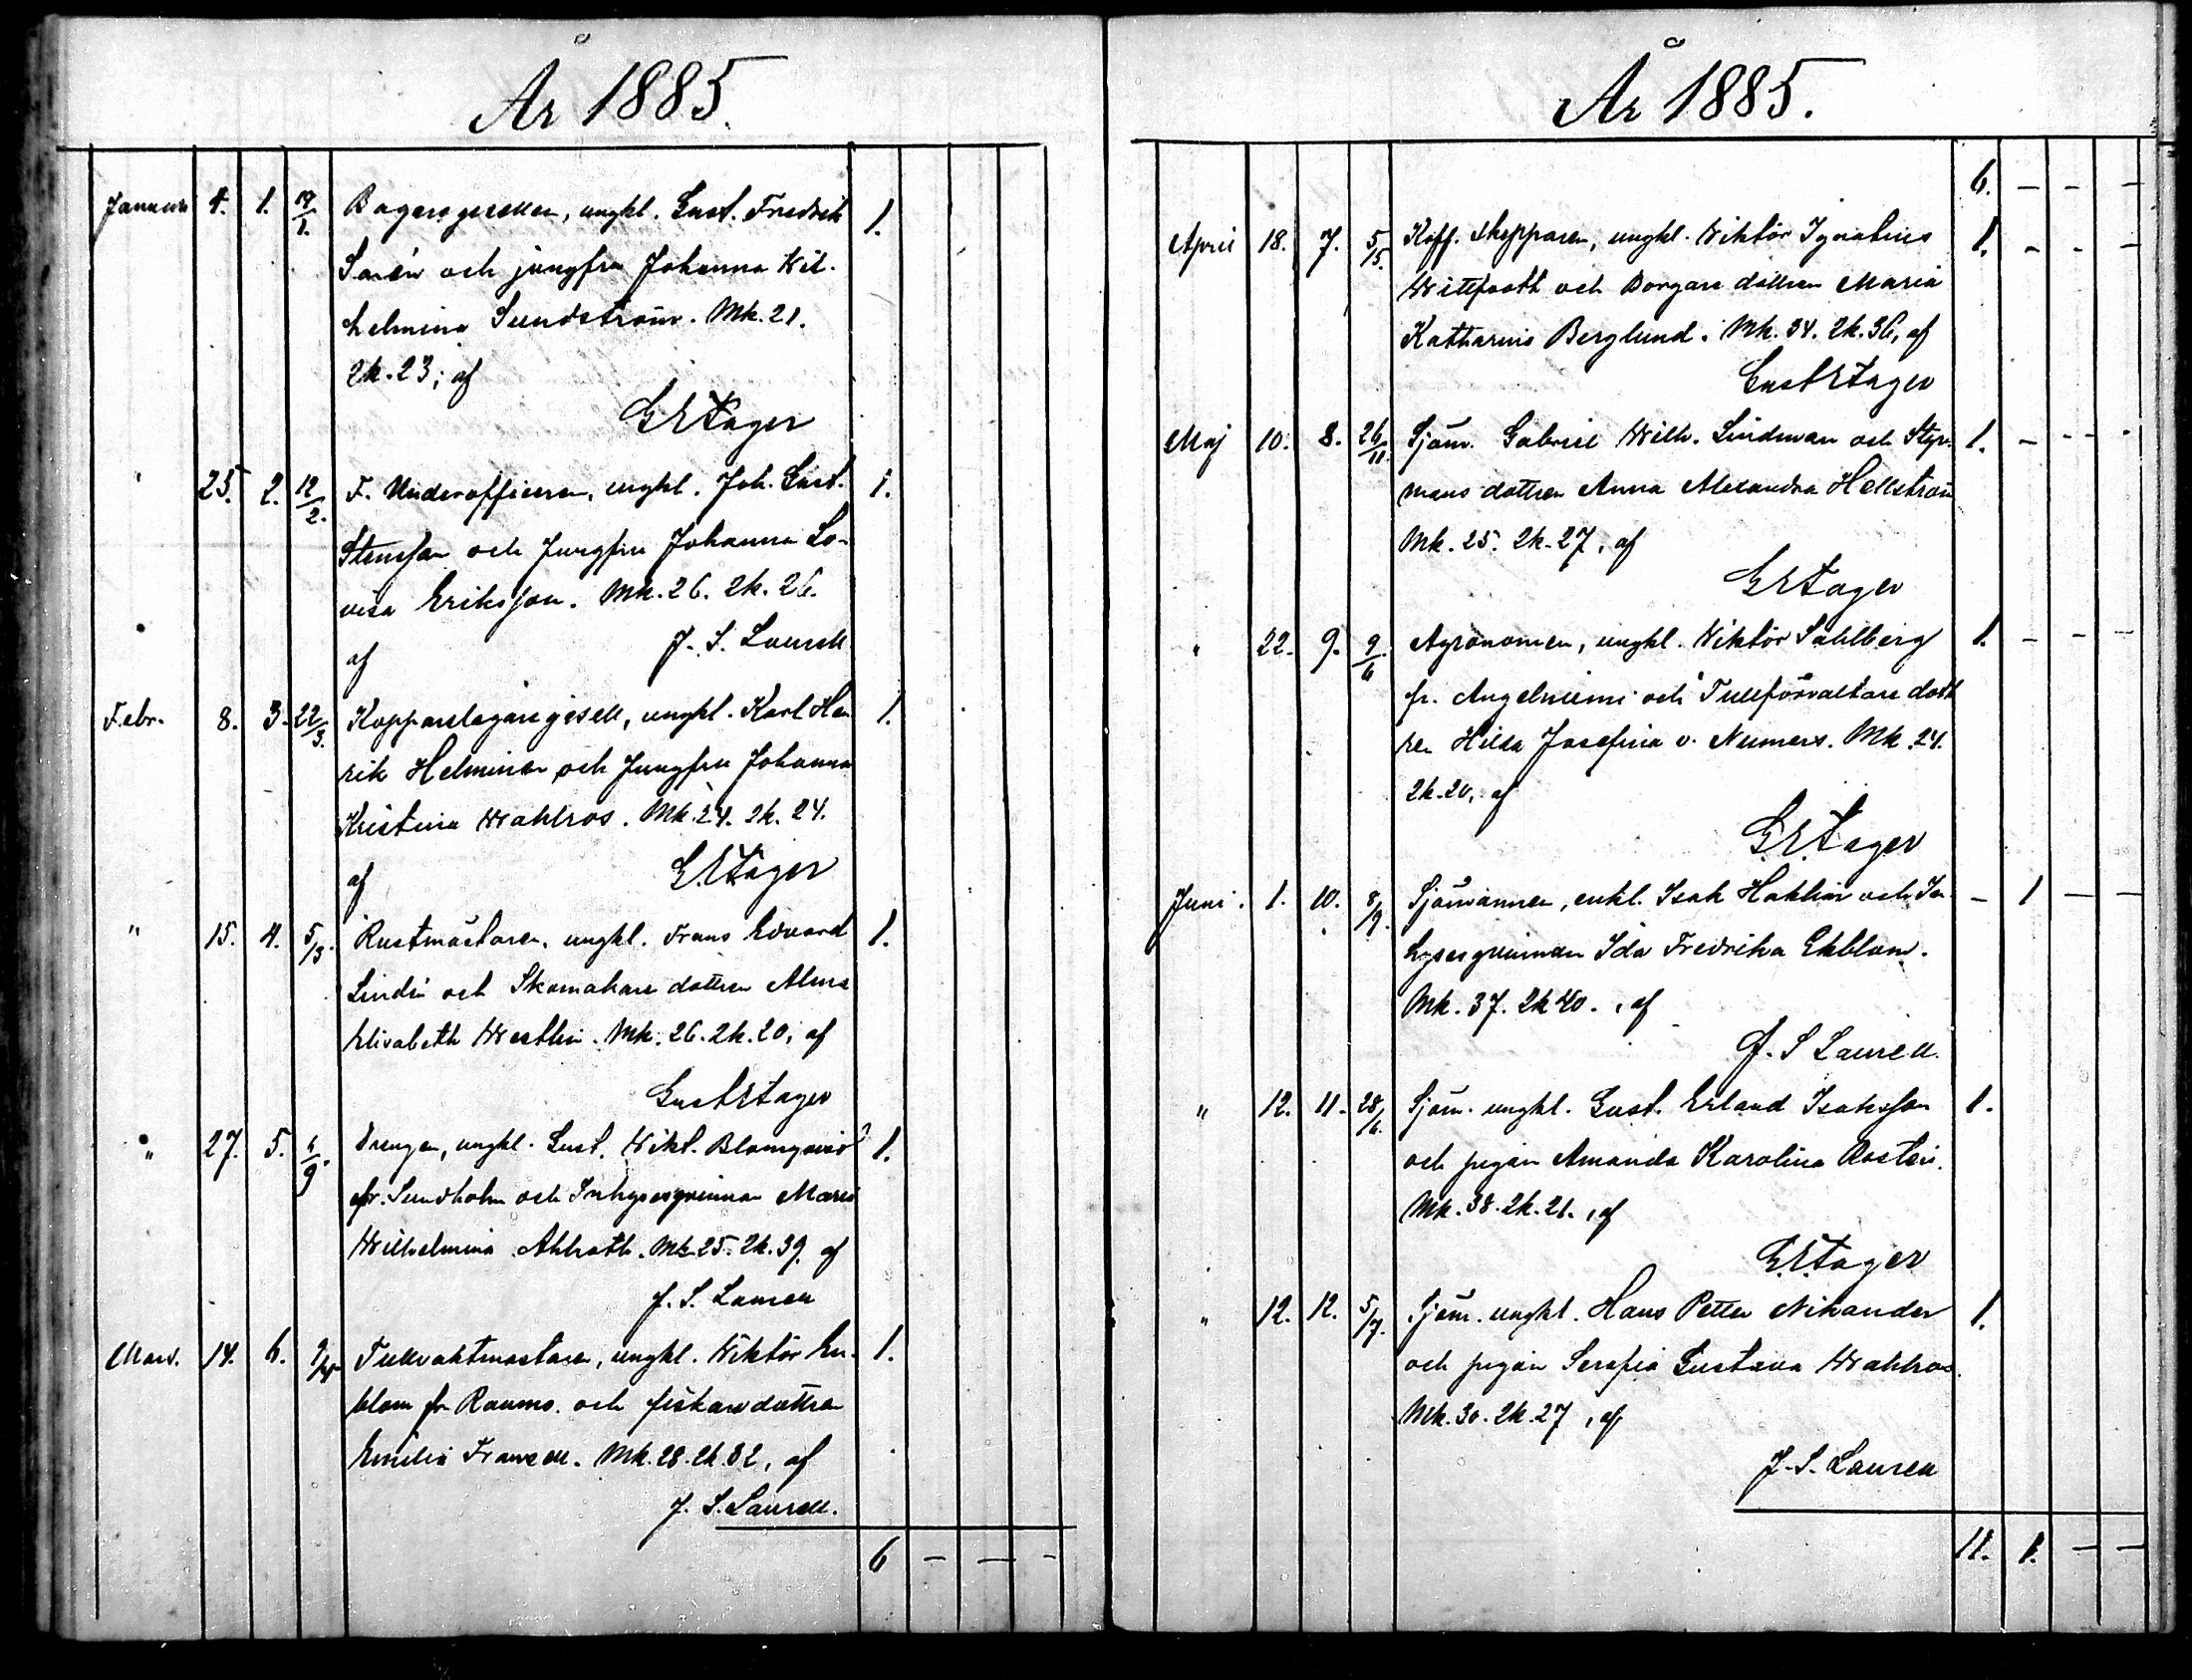 År 1885.
Januari 4. 1. 19/1. Bagaregesellen, ungkl. Gust. Fredrik 1.
och jungfru Johanna Wil-
helmina Sundström. Mk. 21.
Qk. 23; af
" 25. 2. 12/2. F. Underofficeren, ungkl. Joh. Gust. 1.
Stensson och Jungfru Johanna Lo-
visa Eriksson. Mk. 26. Qk. 26.
af J. S. Laurell
Febr. 8. 3. 22/3. Kopparslagaregesell, ungkl. Karl Hen
rik Helminen och Jungfru Johanna
Kristina Wahlros. Mk. 24. Qk. 24.
af
" 15. 4. 5/3. Rustmästaren, ungkl. Frans Edvard 1.
Lindén och Skomakare dottren Alma
Elisabeth Westlin. Mk. 26. Qk. 20, af
" 27. 5. Drengen, ungkl. Gust. Wikt. Blomqvist 1.
fr. Sundholm och Inhysesqvinnan Maria
Wilhelmina Ahlroth. Mk. 25. Qk. 39. af
J. S. Laurell
Mars. 14. 6. Tullvaktmästaren, ungkl. Wiktor En- 1.
blom fr. Raumo och fiskaredottren
Emilia Franzell. Mk. 28. Qk. 32, af
J. S. Laurell.
6 — — —
År 1885.
6. — — —
April 18. 7. 5/5. Koff. skepparen, ungkl. Wiktor Ignatius 1. — — —
Wittfooth och Borgare dottren Maria
Katharina Berglund. Mk. 34. Qk. 36, af
Maj 10. 8. 26/11. Sjöm. Gabriel Wilh. Lindman och Styr- 1. — — -
mans dottren Anna Alexandra Hellström
Mk. 25. Qk. 27, af
" 22. 9. 9/6. Agronomen, ungkl. Wiktor Sahlberg 1. — — —
fr. Angelniemi och Tullförvaltare dott
ren Hilda Josefina v. Numers. Mk. 24.
Qk. 20, af
Juni. 1. 10. Sjömannen, enkl. Isak Hakklin och In- — 1 — —
hysesqvinnan Ida Fredrika Ekblom.
Mk. 37. Qk 40. , af
J. S Laurell.
" 12. 11. 28/6. Sjöm. ungkl. Gust. Erland Isaksson 1.
och pigan Amanda Karolina Rostén.
Mk. 38. Qk. 21. , af
" 12. 12. 5/7. Sjöm. ungkl. Hans Petter Nikander 1.
och pigan Serafia Gustava Wahlros.
Mk. 30. Qk. 27 , af
J. S. Laurell
11. 1. — —